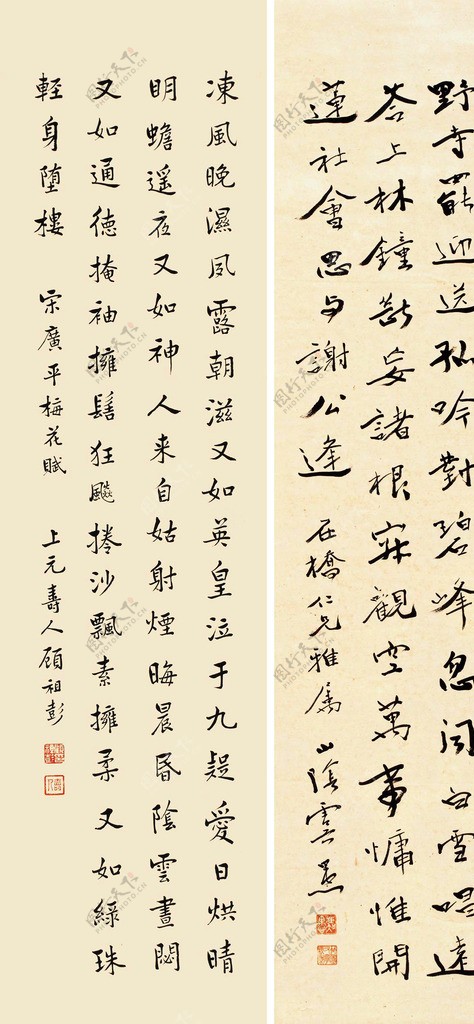 野寺罷迎送孤吟對碧峰忽聞白雪唱遠
答上林鐘歇妄諸根寂觀空萬事慵惟開
蓮社會思与謝公逢 石橋仁兄雅屬 山陰
凍風晚濕夙露朝滋又如英皇泣于九疑愛日烘晴
明蟾遥夜又如神人来自姑射煙晦晨昏陰雲晝閟
又如通德掩袖擁髻狂飈捲沙飄素擁柔又如綠珠
輕身墮樓 宋廣平梅花賦 上元壽人顧祖彭